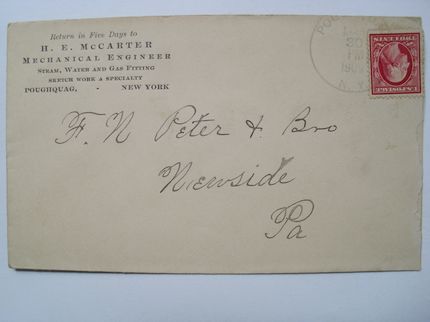 Return in Five Days to
H. E. McCARTER
MECHANICAL ENGINEER
STEAM, WATER AND GAS FITTING
SKETCH WORK A SPECIALTY
POUGHQUAG, - NEW YORK
30
N. Y.
U.S. POSTAGE
TWO CENTS
F. N Peter & Bro
Newside
Pa